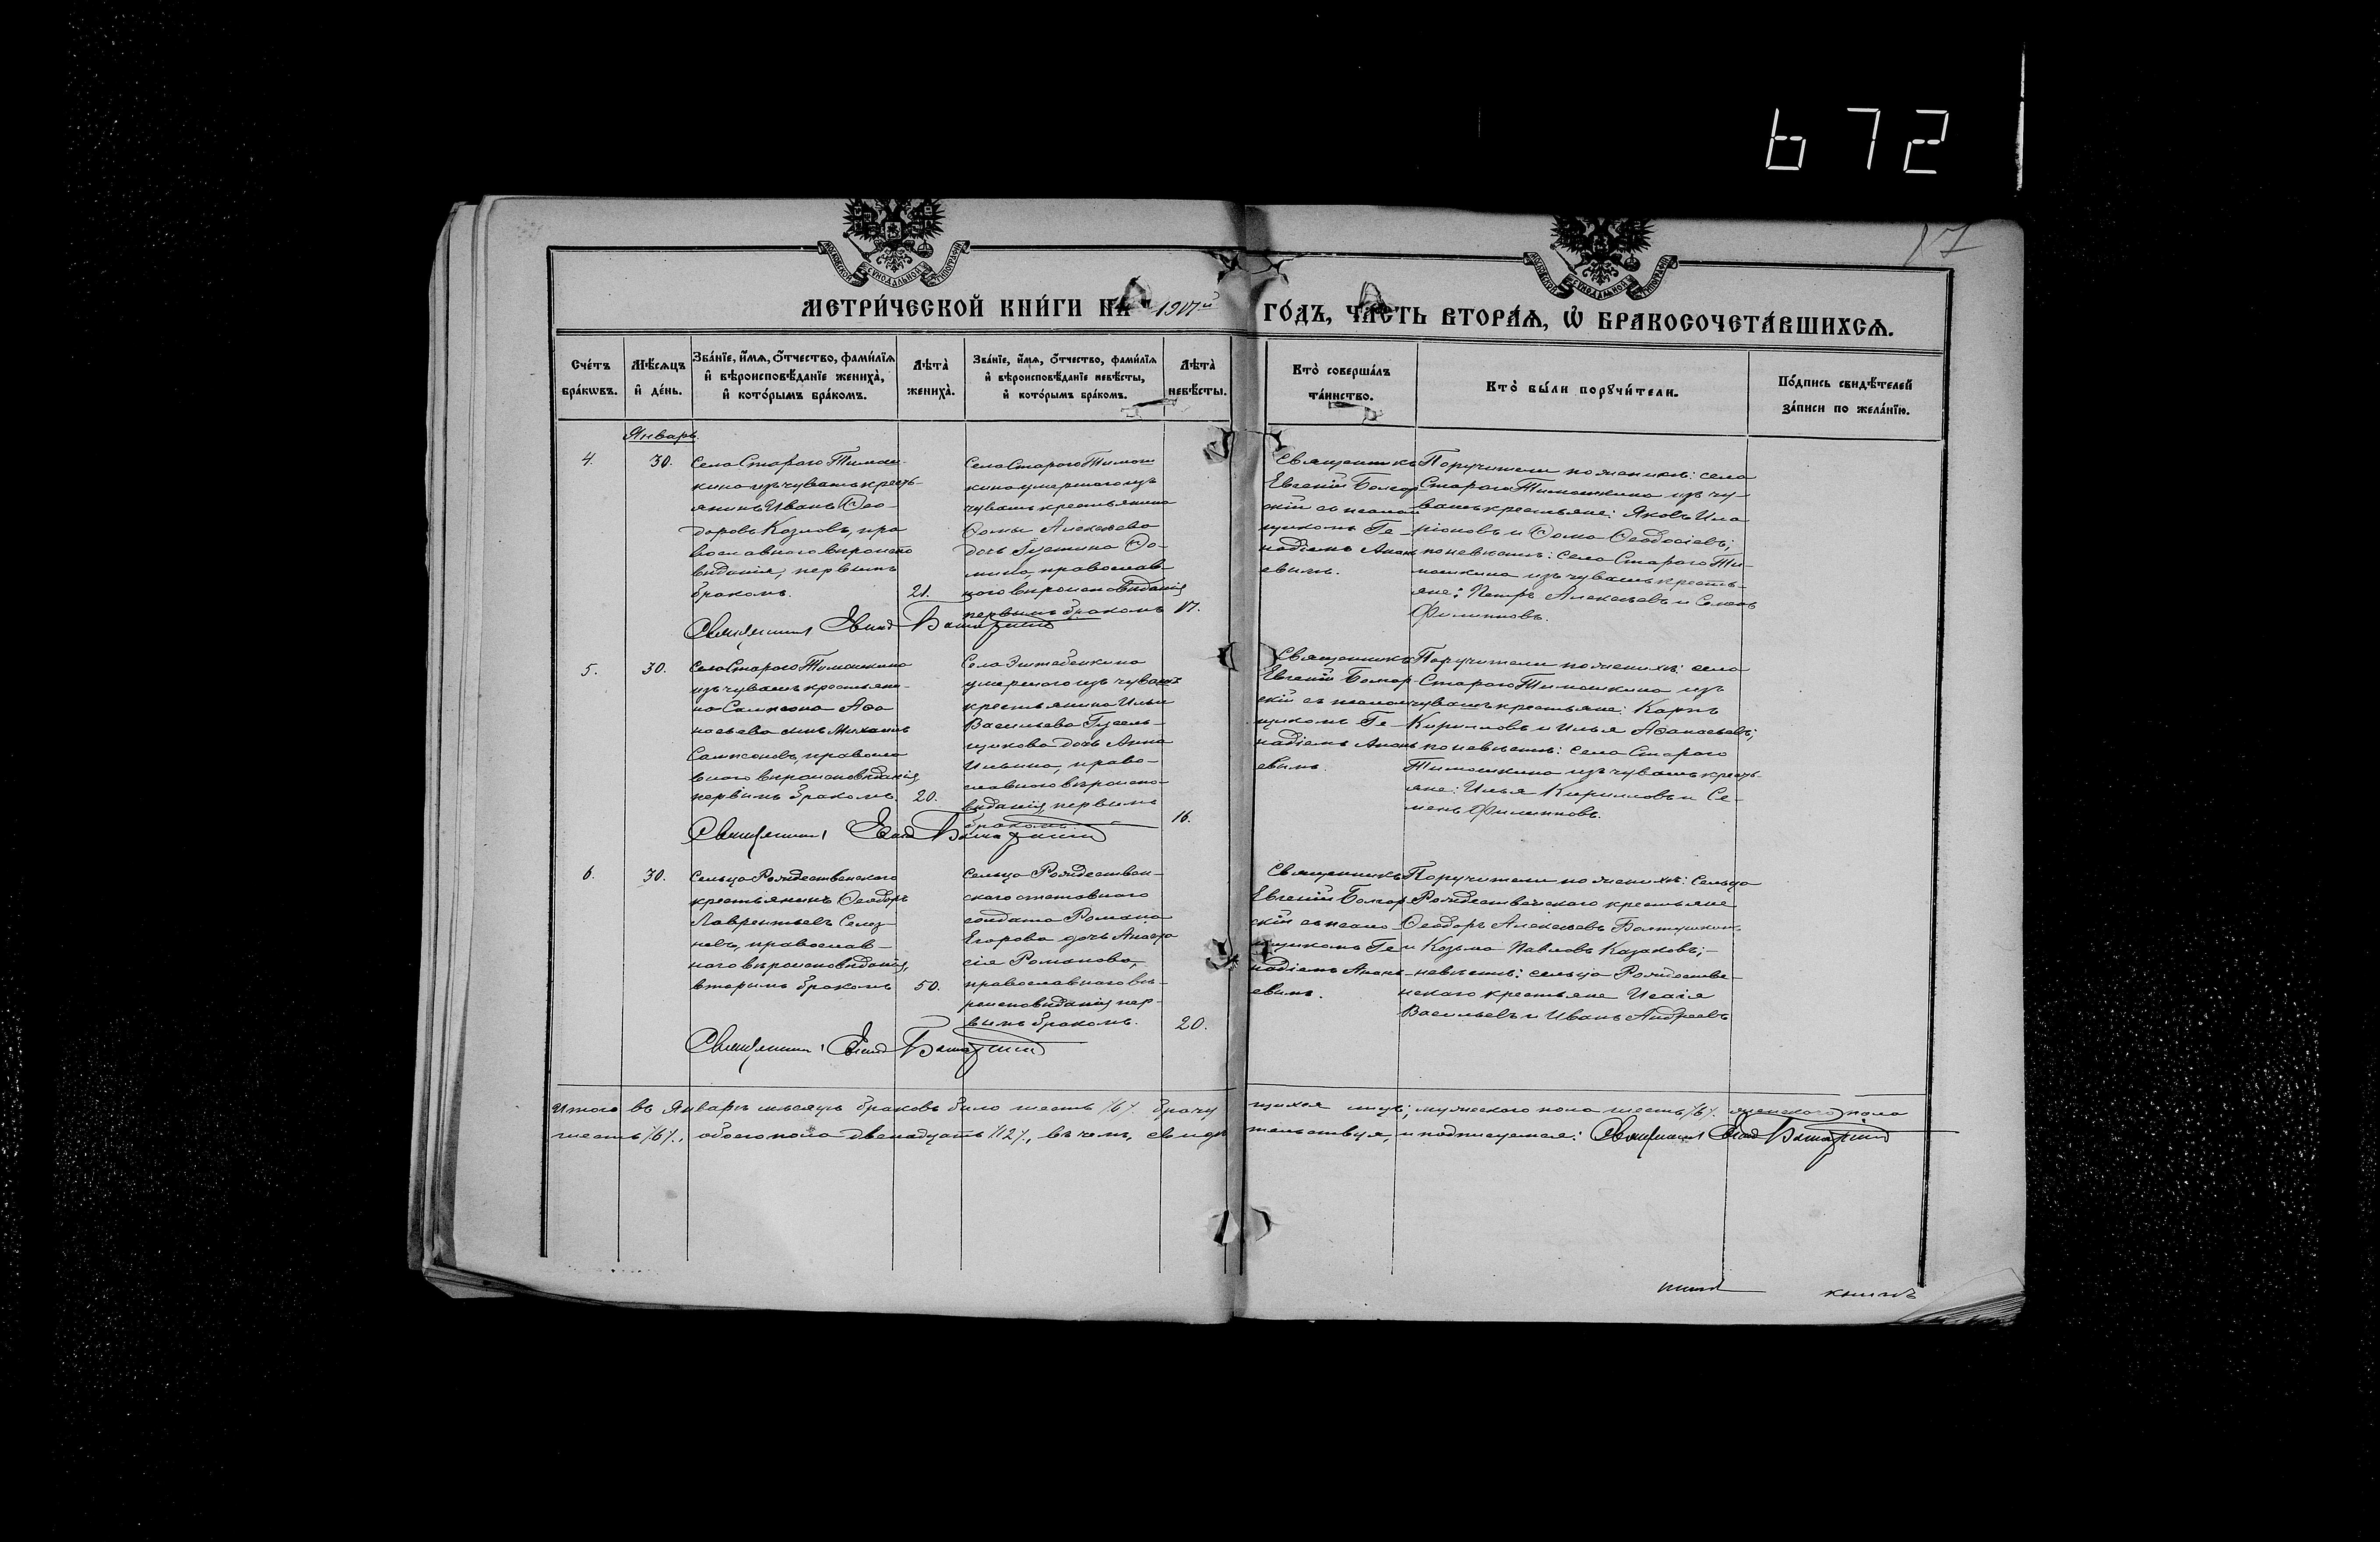 672
17
МОСКОВСКОЙ СѴНОДАЛЬНОЙ ТИПОГРАФІИ
МОСКОВСКОЙ СѴНОДАЛЬНОЙ ТИПОГРАФІИ
МЕТРИ́ЧЕСКОЙ КНИ́ГИ НА 1907й ГО́ДЪ, ЧА́СТЬ ВТОРА́Ѧ, Ѡ҆ БРАКОСОЧЕТА́ВШИХСѦ.
Сче́тъ бра́кѡвъ.
Мѣ́сѧцъ и҆ де́нь.
Зва́нїе, и҆́мѧ, ѻ҆́тчество, фами́лїѧ
и҆ вѣроисповѣ́данїе жениха̀,
и҆ кото́рымъ бра́комъ.
Лѣ́та̀ жениха̀.
Зва́нїе, и҆́мѧ, ѻ҆́тчество, фами́лїѧ
и҆ вѣроисповѣ́данїе невѣ́сты,
и҆ кото́рымъ бра́комъ.
Лѣ́та̀ невѣ́сты.
Кто̀ соверша́лъ
та́инство.
Кто̀ бы́ли порꙋчи́тели.
По́дпись свидѣ́телей
за́писи по жела́нїю.
Январь.
4.
30.
Села Стараго Тимош-
кино изъ чувашъ кресть-
янинъ Иванъ Ѳео-
доровъ Козловъ, пра
вославнаго вѣроиспо
вѣданія, первымъ
бракомъ.
21.
Села Старого Тимош
кино умершаго изъ
чувашъ крестьянина
Ѳомы Алексѣева
дочь Іустина Ѳо-
мина, православ
наго вѣроисповѣданія
первымъ бракомъ
17.
Священникъ
Евгеній Болгар
скій съ псалом
щикомъ Ге-
надіемъ Анань
евымъ.
Поручители по женихѣ: села
Стараго Тимошкина изъ чу-
вашъ крестьяне: Яковъ Ила
ріоновъ и Ѳома Ѳеодосіевъ;
по невѣстѣ: села Стараго Ти-
мошкина изъ чувашъ кресть-
яне: Петръ Алексѣевъ и Семенъ
Филипповъ.
Священникъ
5.
30.
Села Стараго Тимошкина
изъ чувашъ крестьяни-
на Самсона Аѳа
насьева сынъ Михаилъ
Самсоновъ, правосла
внаго вѣроисповѣданія
первымъ бракомъ
20.
умершаго изъ чувашъ
крестьянина Ильи
Васильева Гусель-
щикова дочь Анна
Ильина, право-
славнаго вѣроиспо-
вѣданія, первымъ
бракомъ.
16.
Священникъ
Евгеній Болгар-
скій съ псалом
щикомъ Ге-
надіемъ Анань
евымъ.
Поручители по женихѣ: села
Стараго Тимошкина изъ
чувашъ крестьяне: Карпъ
Кирилловъ и Илья Аѳанасьевъ;
по невѣстѣ: села Стараго
Тимошкина изъ чувашъ кресть-
яне: Илья Кирилловъ и Се-
менъ Филипповъ.
Священникъ
6.
30.
Сельца Рождественскаго
крестьянинъ Ѳеодоръ
Лаврентьевъ Селез
невъ, православ-
наго вѣроисповѣданія,
вторымъ бракомъ
50.
Сельца Рождествен-
скаго отставного
солдата Романа
Егорова дочь Анаста
сія Романова,
православнаго вѣ-
роисповѣданія, пер-
вымъ бракомъ.
20.
Священникъ
Евгеній Болгар
скій съ псалом
щикомъ Ге
надіемъ Анань
евымъ.
Поручители по женихѣ: сельца
Рождественскаго крестьяне
Ѳеодоръ Алексѣевъ
и Козьма Павловъ Казаковъ;
невѣстѣ: сельца Рождестве-
нскаго крестьяне Исаія
Васильевъ и Иванъ Андреевъ
Священникъ
Итого въ Январѣ мѣсяцѣ браковъ было шесть /6/. брачу щихся лицъ, мужескаго пола шесть /6/. женскаго пола
шесть /6/., обоего пола двенадцать /12/., въ чемъ, свидѣ тельствуя, и подписуемся: Священникъ